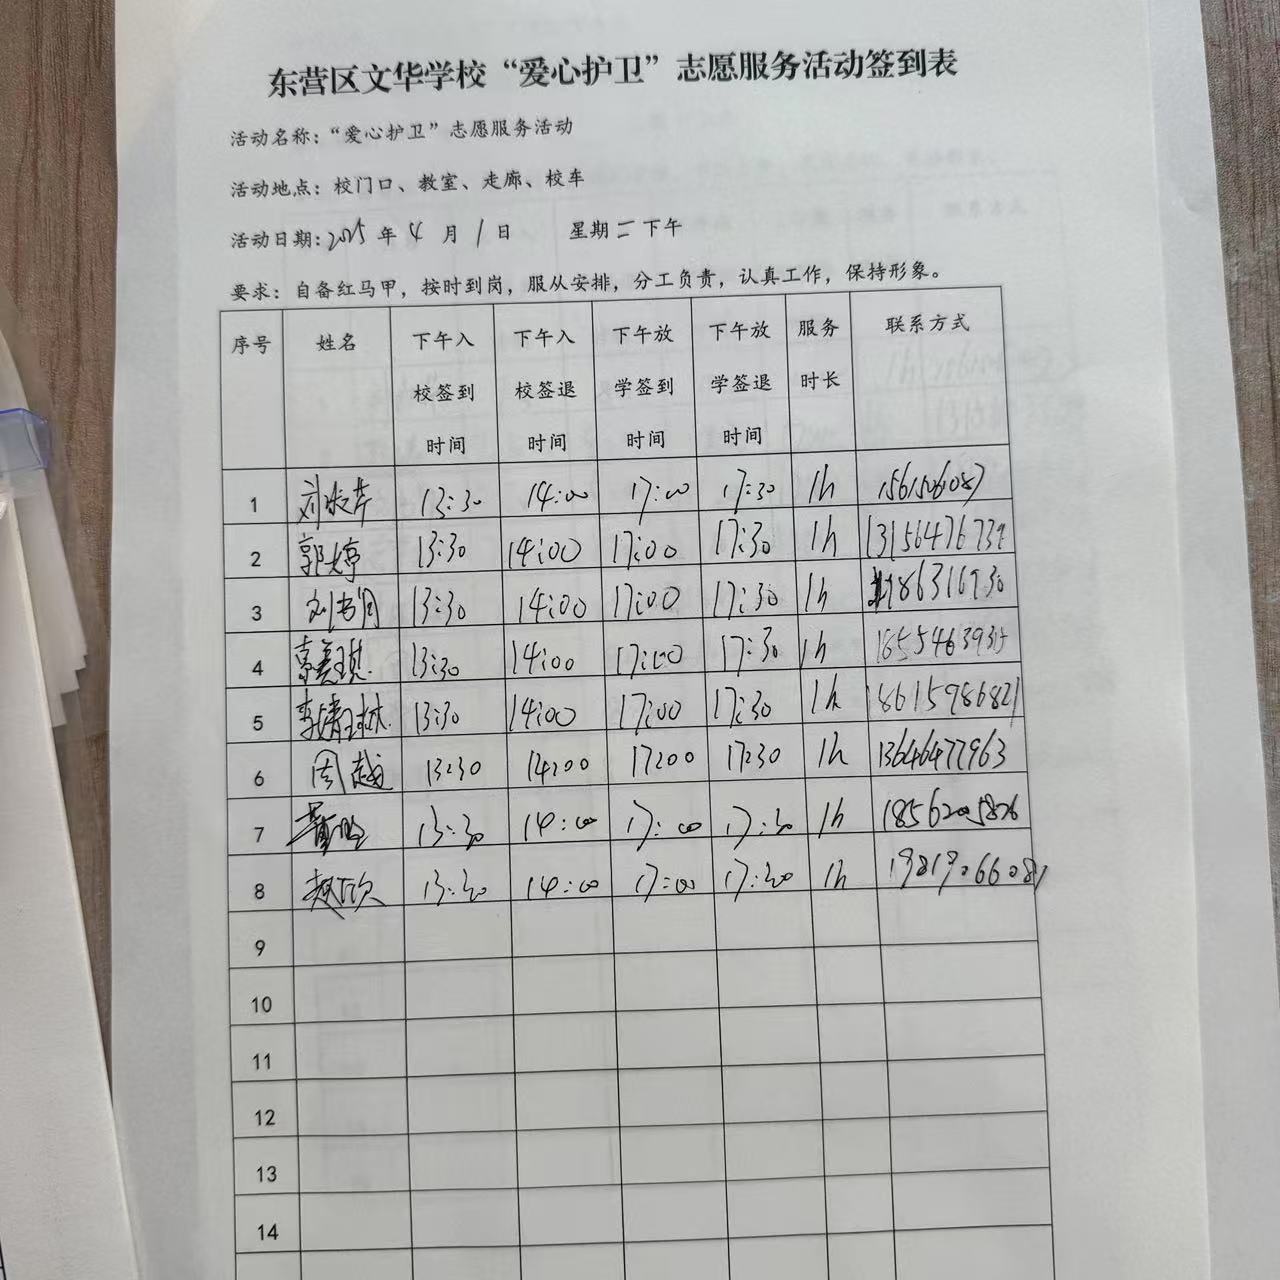 东营区文华学校“爱心护卫”志愿服务活动签到表
活动名称：“爱心护卫”志愿服务活动
活动地点：校门口、教室、走廊、校车
活动日期：2025年4月1日 星期二下午
要求：自备红马甲，按时到岗，服从安排，分工负责，认真工作，保持形象。
序号 姓名 下午入校签到时间 下午入校签退时间 下午放学签到时间 下午放学签退时间 服务时长 联系方式
1 13:30 14:00 17:00 17:30 1h
2 郭婷 13:30 14:00 17:00 17:30 1h 13156476739
3 13:30 14:00 17:00 17:30 1h
4 13:30 14:00 17:00 17:30 1h
5 13:30 14:00 17:00 17:30 1h 18615986821
6 周越 13:30 14:00 17:00 17:30 1h 13646477963
7 13:30 14:00 17:00 17:30 1h 18562005826
8 赵欣 13:30 14:00 17:00 17:30 1h
9
10
11
12
13
14